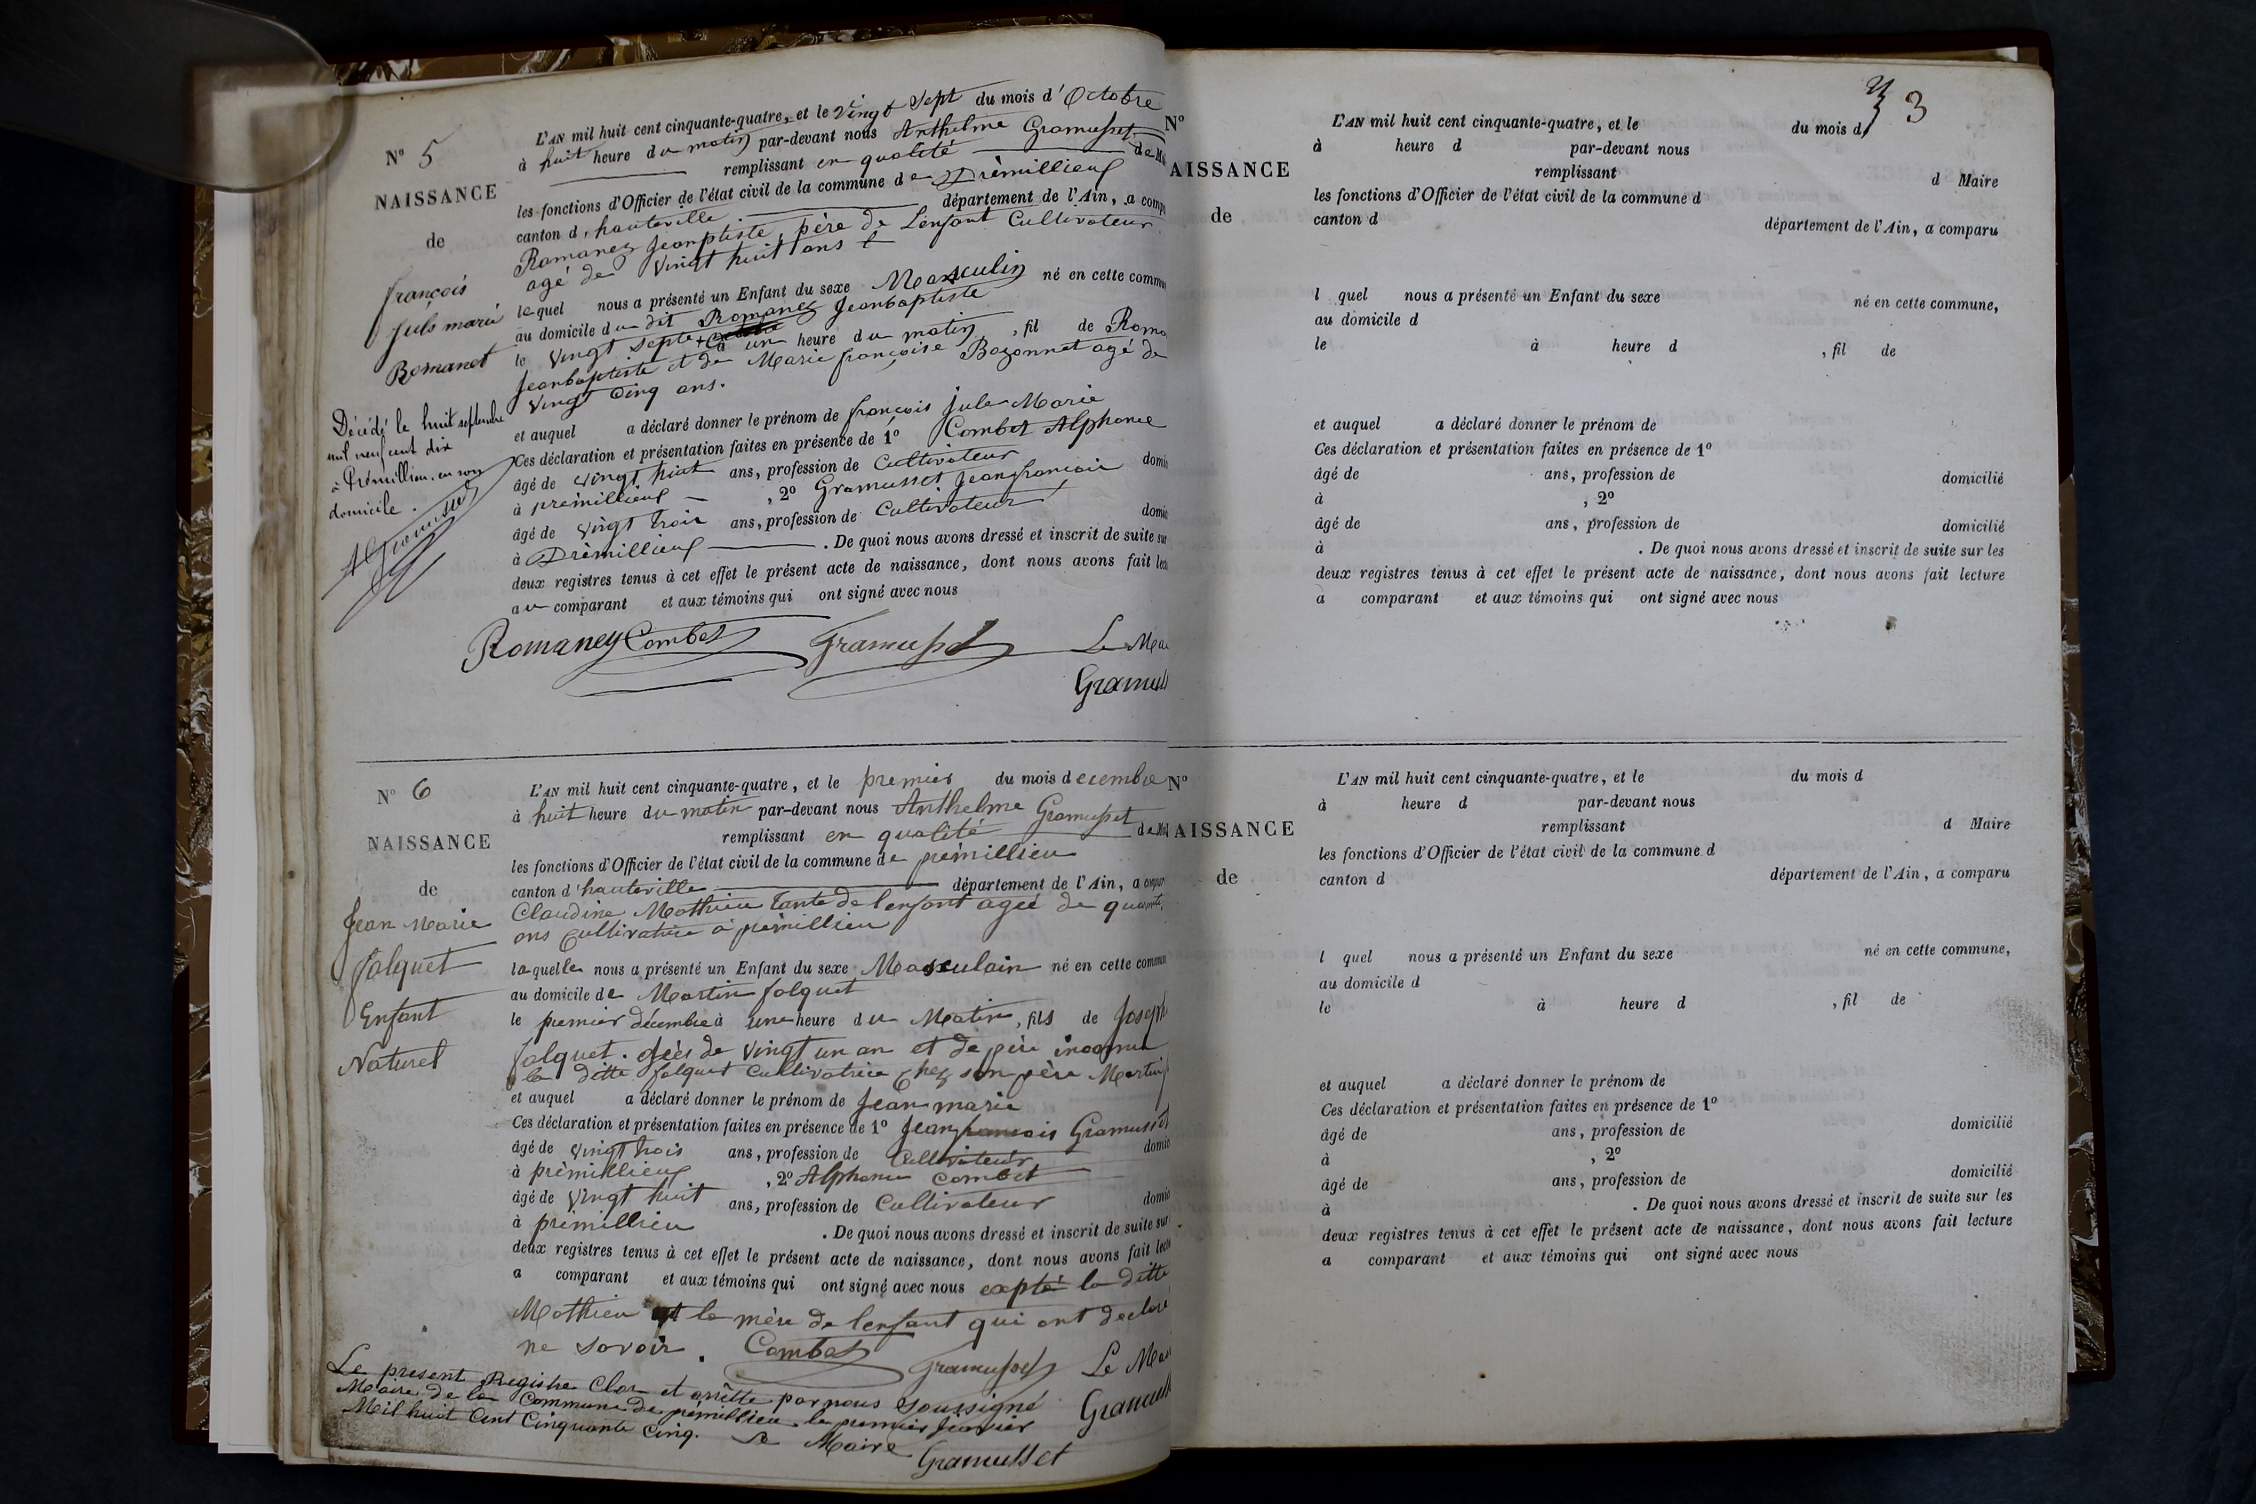 N° 5
NAISSANCE
de
françois
Jule marie
Romanet
Décédé le huit septembre
mil neuf cent dix
à Prémillieu, en son
domicile.
L'AN mil huit cent cinquante-quatre, et le vingt sept du mois d'Octobre
à huit heure du matin par-devant nous Anthelme Gramusset
remplissant en qualité de
les fonctions d'Officier de l'état civil de la commune de Prèmillieux
canton d'hauteville département de l'Ain, a comp
Romanez Jeanptiste, père de Lenfant Cultivateur
agé de vingt huit ans
lequel nous a présenté un Enfant du sexe Masculin né en cette commu
au domicile du dit Romanez Jeanbaptiste
le vingt septe à un heure du matin, fil de Roma
Jeanbaptiste et de Marie françoise Bozonnet agé de
vingt Cinq ans.
et auquel a déclaré donner le prénom de françois Jule Marie
Ces déclaration et présentation faites en présence de 1° Combet Alphonce
âgé de vingt huit ans, profession de Cultivateur domi
à prèmillieux, 2° Gramusset Jeanfrancois
âgé de vingt trois ans, profession de Cultivateur domi
à Prèmillieux. De quoi nous avons dressé et inscrit de suite sur
deux registres tenus à cet effet le présent acte de naissance, dont nous avons fait lec
au comparant et aux témoins qui ont signé avec nous
Romaney Combet Gramusset Le Ma
Gramuss
N° 6
NAISSANCE
de
Jean Marie
folquet
Enfant
Naturel
L'AN mil huit cent cinquante-quatre, et le premier du mois decembre
à huit heure du matin par-devant nous Anthelme Gramusset
remplissant en qualité de
les fonctions d'Officier de l'état civil de la commune de prèmillieu
canton d'hauteville département de l'Ain, a compar
Claudine Mathieu tante de lenfant agée de quarante
ans Cultivatrice à prèmillieu
laquelle nous a présenté un Enfant du sexe Masculain né en cette commun
au domicile de Martin folquet
le premier décembre à une heure du Matin, fils de Joseph
folquet. agèe de vingt un an et de père inconnu
la ditte folquet Cultivatrice Chez son père Martin
et auquel a déclaré donner le prénom de Jean marie
Ces déclaration et présentation faites en présence de 1° Jeanfrancois Gramusset
âgé de vingt trois ans, profession de Cultivateur domi
à prèmillieux, 2° Alphonce Combet
âgé de vingt huit ans, profession de Cultivateur domi
à prèmillieu. De quoi nous avons dressé et inscrit de suite sur
deux registres tenus à cet effet le présent acte de naissance, dont nous avons fait lect
a comparant et aux témoins qui ont signé avec nous expté la ditte
Mathieu et la mère de lenfant qui ont declaré
ne savoir. Combet Gramusset Le Ma
Gramuss
Le present Registre Clos et arrêtte par nous soussigné
Maire de la Commune de prémillieu le premier Janvier
Mil huit Cent Cinquante Cinq. Le Maire
Gramusset
3
N°
AISSANCE
de
L'AN mil huit cent cinquante-quatre, et le du mois d
à heure d par-devant nous
remplissant d Maire
les fonctions d'Officier de l'état civil de la commune d
canton d département de l'Ain, a comparu
l quel nous a présenté un Enfant du sexe né en cette commune,
au domicile d
le à heure d , fil de
et auquel a déclaré donner le prénom de
Ces déclaration et présentation faites en présence de 1°
âgé de ans, profession de domicilié
à , 2°
âgé de ans, profession de domicilié
à . De quoi nous avons dressé et inscrit de suite sur les
deux registres tenus à cet effet le présent acte de naissance, dont nous avons fait lecture
a comparant et aux témoins qui ont signé avec nous
N°
AISSANCE
de
L'AN mil huit cent cinquante-quatre, et le du mois d
à heure d par-devant nous
remplissant d Maire
les fonctions d'Officier de l'état civil de la commune d
canton d département de l'Ain, a comparu
l quel nous a présenté un Enfant du sexe né en cette commune,
au domicile d
le à heure d , fil de
et auquel a déclaré donner le prénom de
Ces déclaration et présentation faites en présence de 1°
âgé de ans, profession de domicilié
à , 2°
âgé de ans, profession de domicilié
à . De quoi nous avons dressé et inscrit de suite sur les
deux registres tenus à cet effet le présent acte de naissance, dont nous avons fait lecture
a comparant et aux témoins qui ont signé avec nous